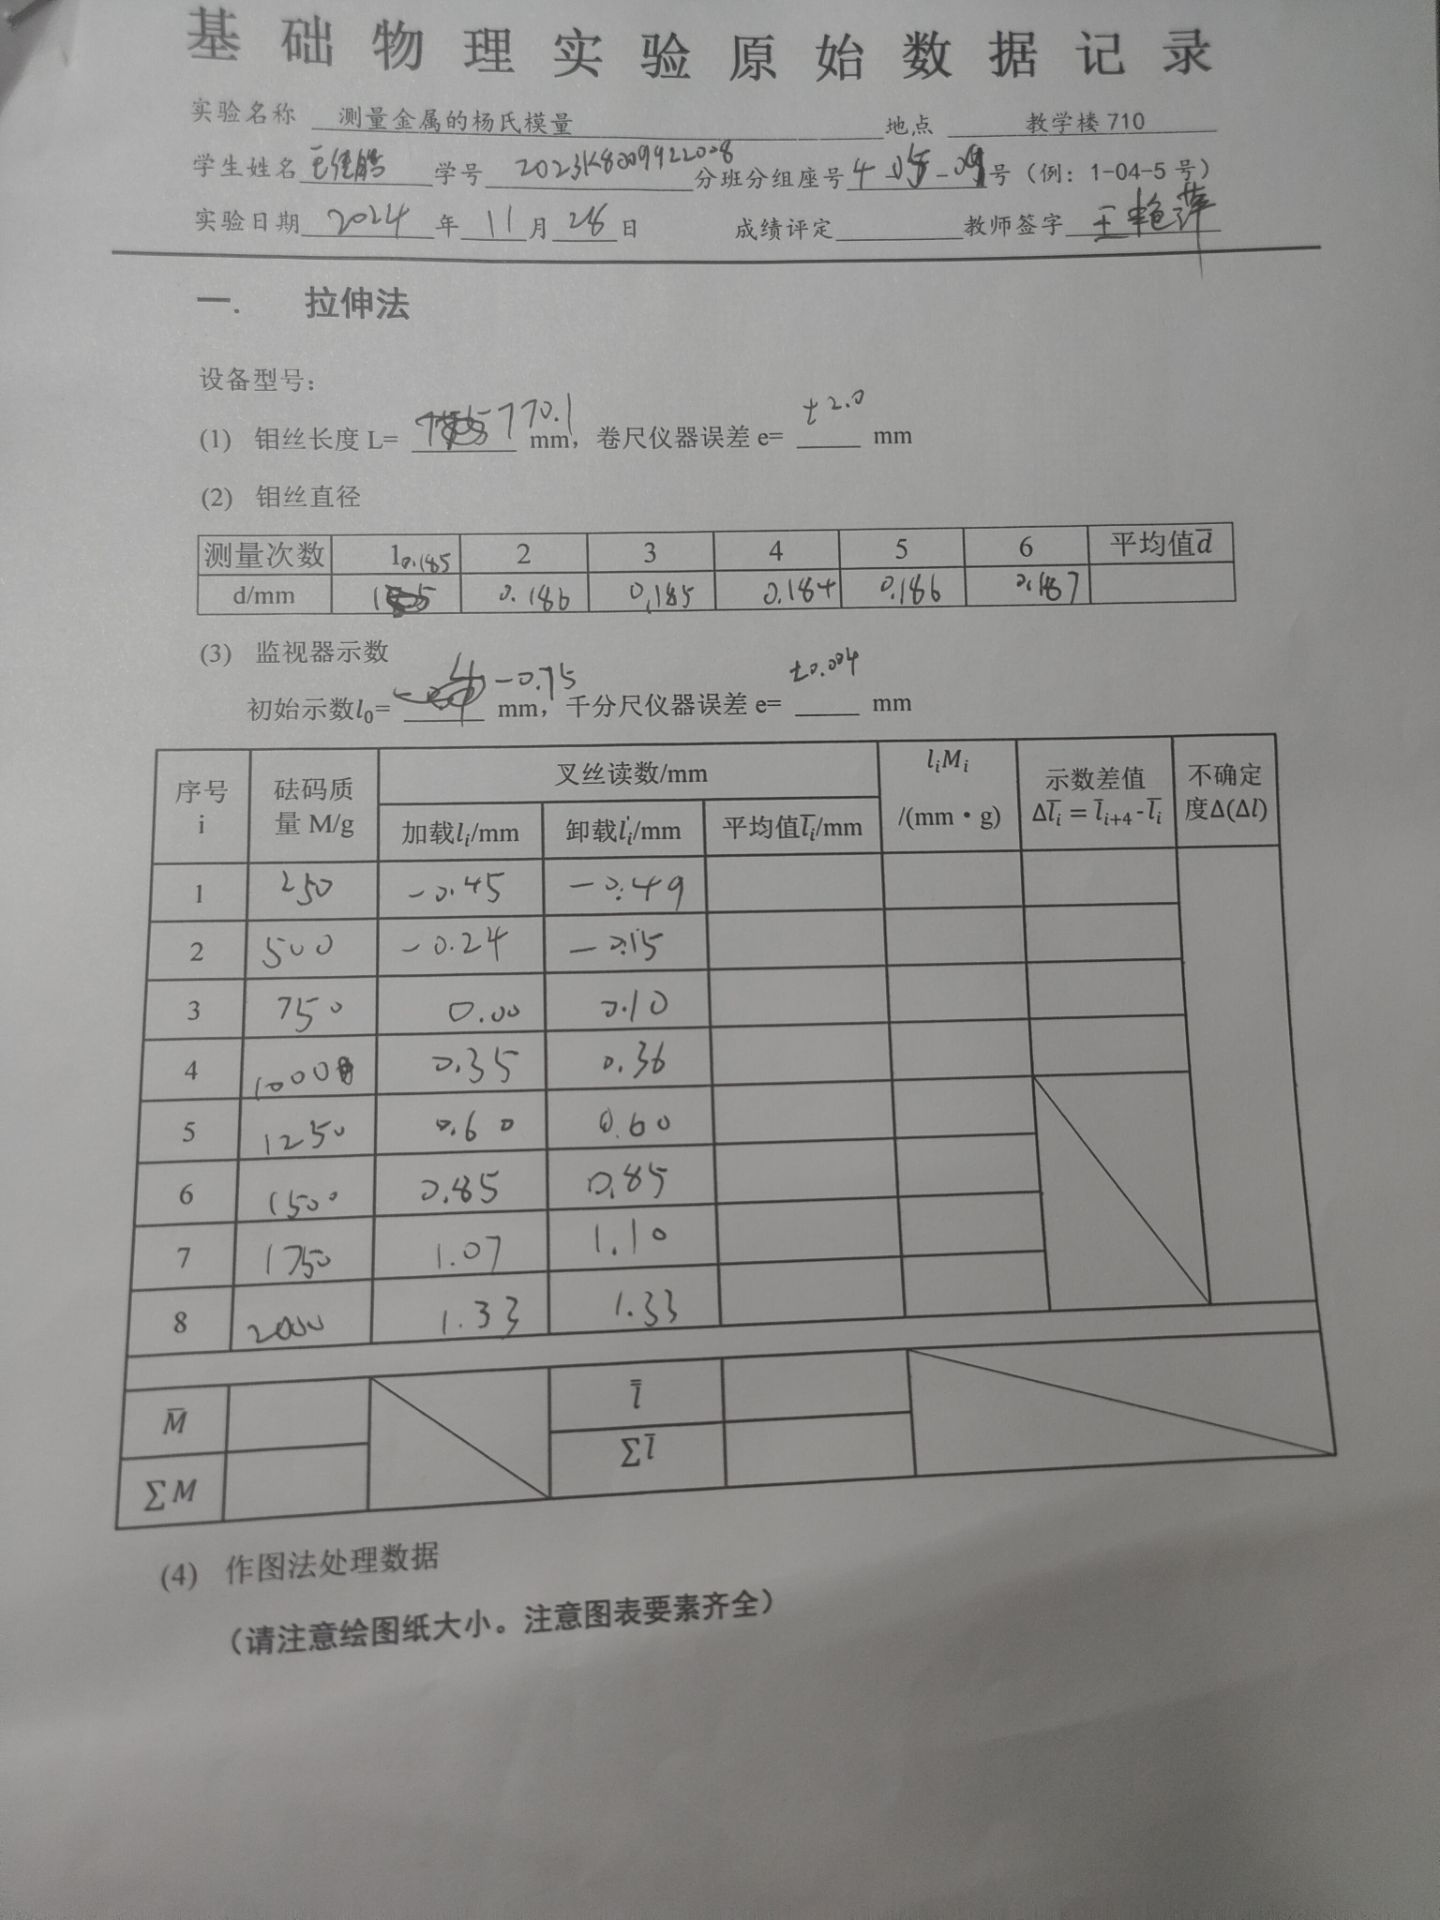 基础物理实验原始数据记录
实验名称 测量金属的杨氏模量 地点 教学楼 710
学生姓名 学号 2023K8009922008 分班分组座号 4-05- 号（例：1-04-5 号）
实验日期 2024 年 11 月 28 日 成绩评定 教师签字 王艳萍
一. 拉伸法
设备型号：
(1) 钼丝长度 L= 770.1 mm，卷尺仪器误差 e= ±2.0 mm
(2) 钼丝直径
测量次数 1 2 3 4 5 6 平均值d̅
d/mm 0.185 0.186 0.185 0.184 0.186 0.187
(3) 监视器示数
初始示数l₀= -0.75 mm，千分尺仪器误差 e= ±0.004 mm
序号 i 砝码质量 M/g 叉丝读数/mm lᵢMᵢ /(mm·g) 示数差值 Δl̅ᵢ = l̅ᵢ₊₄ - l̅ᵢ 不确定度Δ(Δl)
加载lᵢ/mm 卸载lᵢ'/mm 平均值l̅ᵢ/mm
1 250 -0.45 -0.49
2 500 -0.24 -0.15
3 750 0.00 0.10
4 1000 0.35 0.36
5 1250 0.60 0.60
6 1500 0.85 0.85
7 1750 1.07 1.10
8 2000 1.33 1.33
M̅ l̿
∑M ∑l̅
(4) 作图法处理数据
（请注意绘图纸大小。注意图表要素齐全）